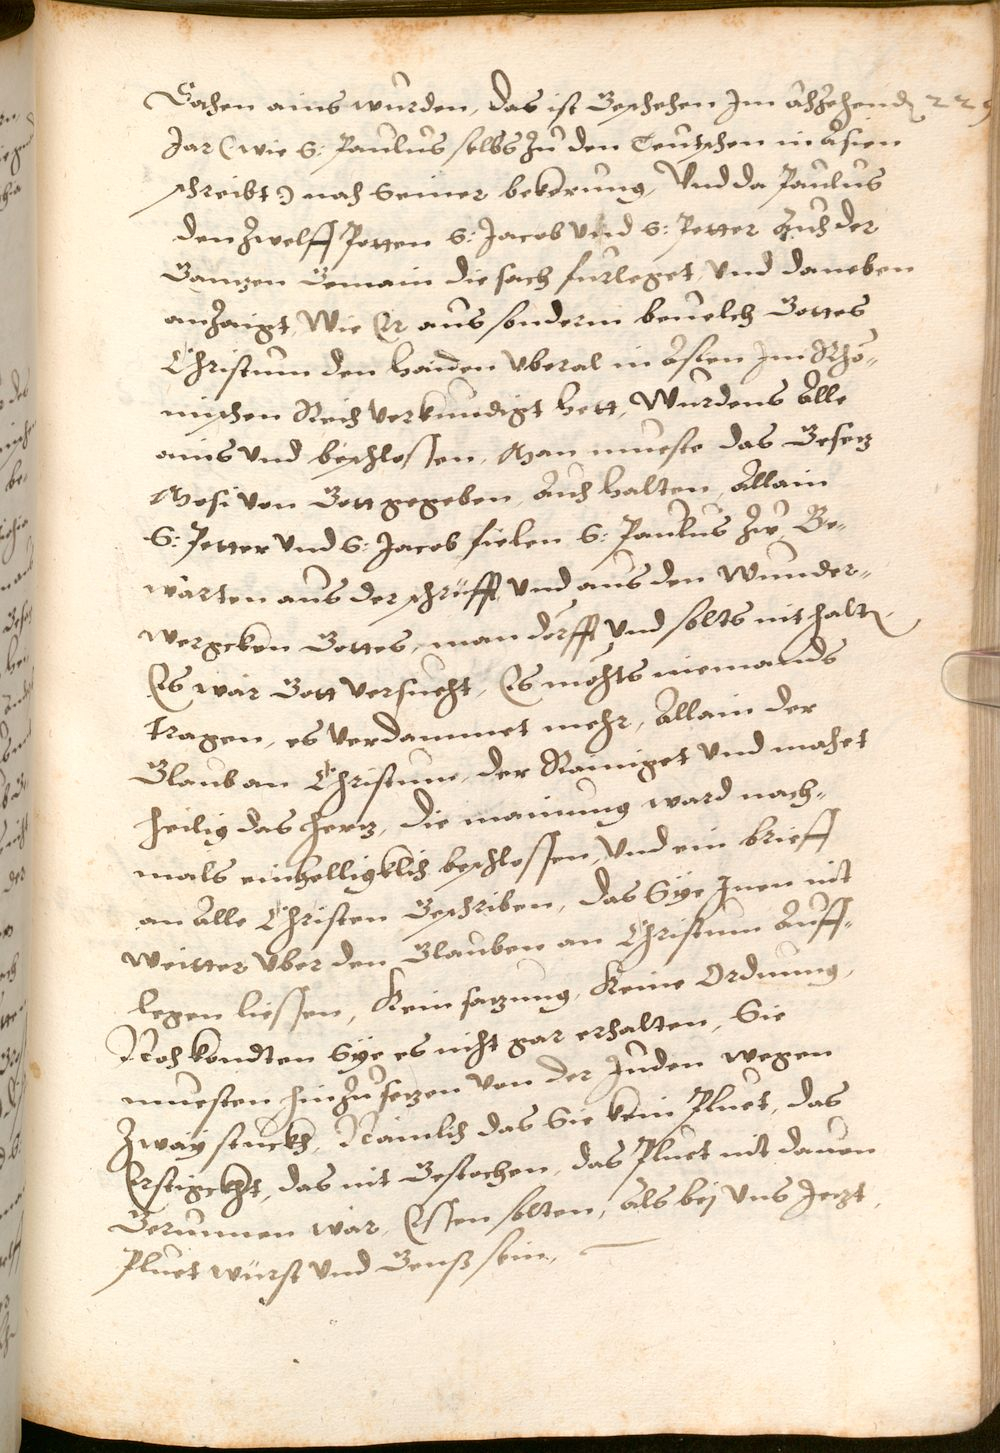 Sachen ains wurden, das ist Geschehen Im achzehend 229
Jar (wie S: Paulus selbs zu den Teutschen in Asien
schreibt:) nach Seiner bekerung, Und da Paulus
den Zwelff Potten S: Jacob Und S: Petter Auch der
Ganzen Gemain die sach furleget, Und daneben
anzaigt, Wie Er aus sonderm beuelch Gottes
Christum den Haiden Uberal in Asien Im Rhö-
mischen Reich Verkundigt hett, Wurdens Alle
ains Und beschlossen, Man mueste das Gesetz
Mosi von Gott gegeben, Auch halten, Allain
S: Petter Und S: Jacob fielen S: Paulus zue, Be-
wärten aus der schrüfft Und aus den Wunder-
wergcken Gottes, man dörfft Und solts nit halten
Es wär Gott Versucht, Es möchts niemands
tragen, es Verdammet mehr, Allain der
Glaub an Christum, der Rainiget Und machet
heilig das hertz, die mainung ward nach-
mals einhelligklich beschlossen, Und ein brieff
an Alle Christen Geschriben, das Sye Inen nit
weitter Uber den Glauben an Christum Auff-
legen liessen, Kein satzung, Keine Ordnung,
Noch kondten Sye es nicht gar erhalten, Sie
muesten hinzu setzen von der Juden wegen
Zway stuckh, Nämlich das Sie kein Pluet, das
Erstigckht, das nit Gestochen, das Pluet nit dauon
Gerunnen wär, Essen solten, Als bej Uns Jetzt,
Pluet würst Und Genss sein,